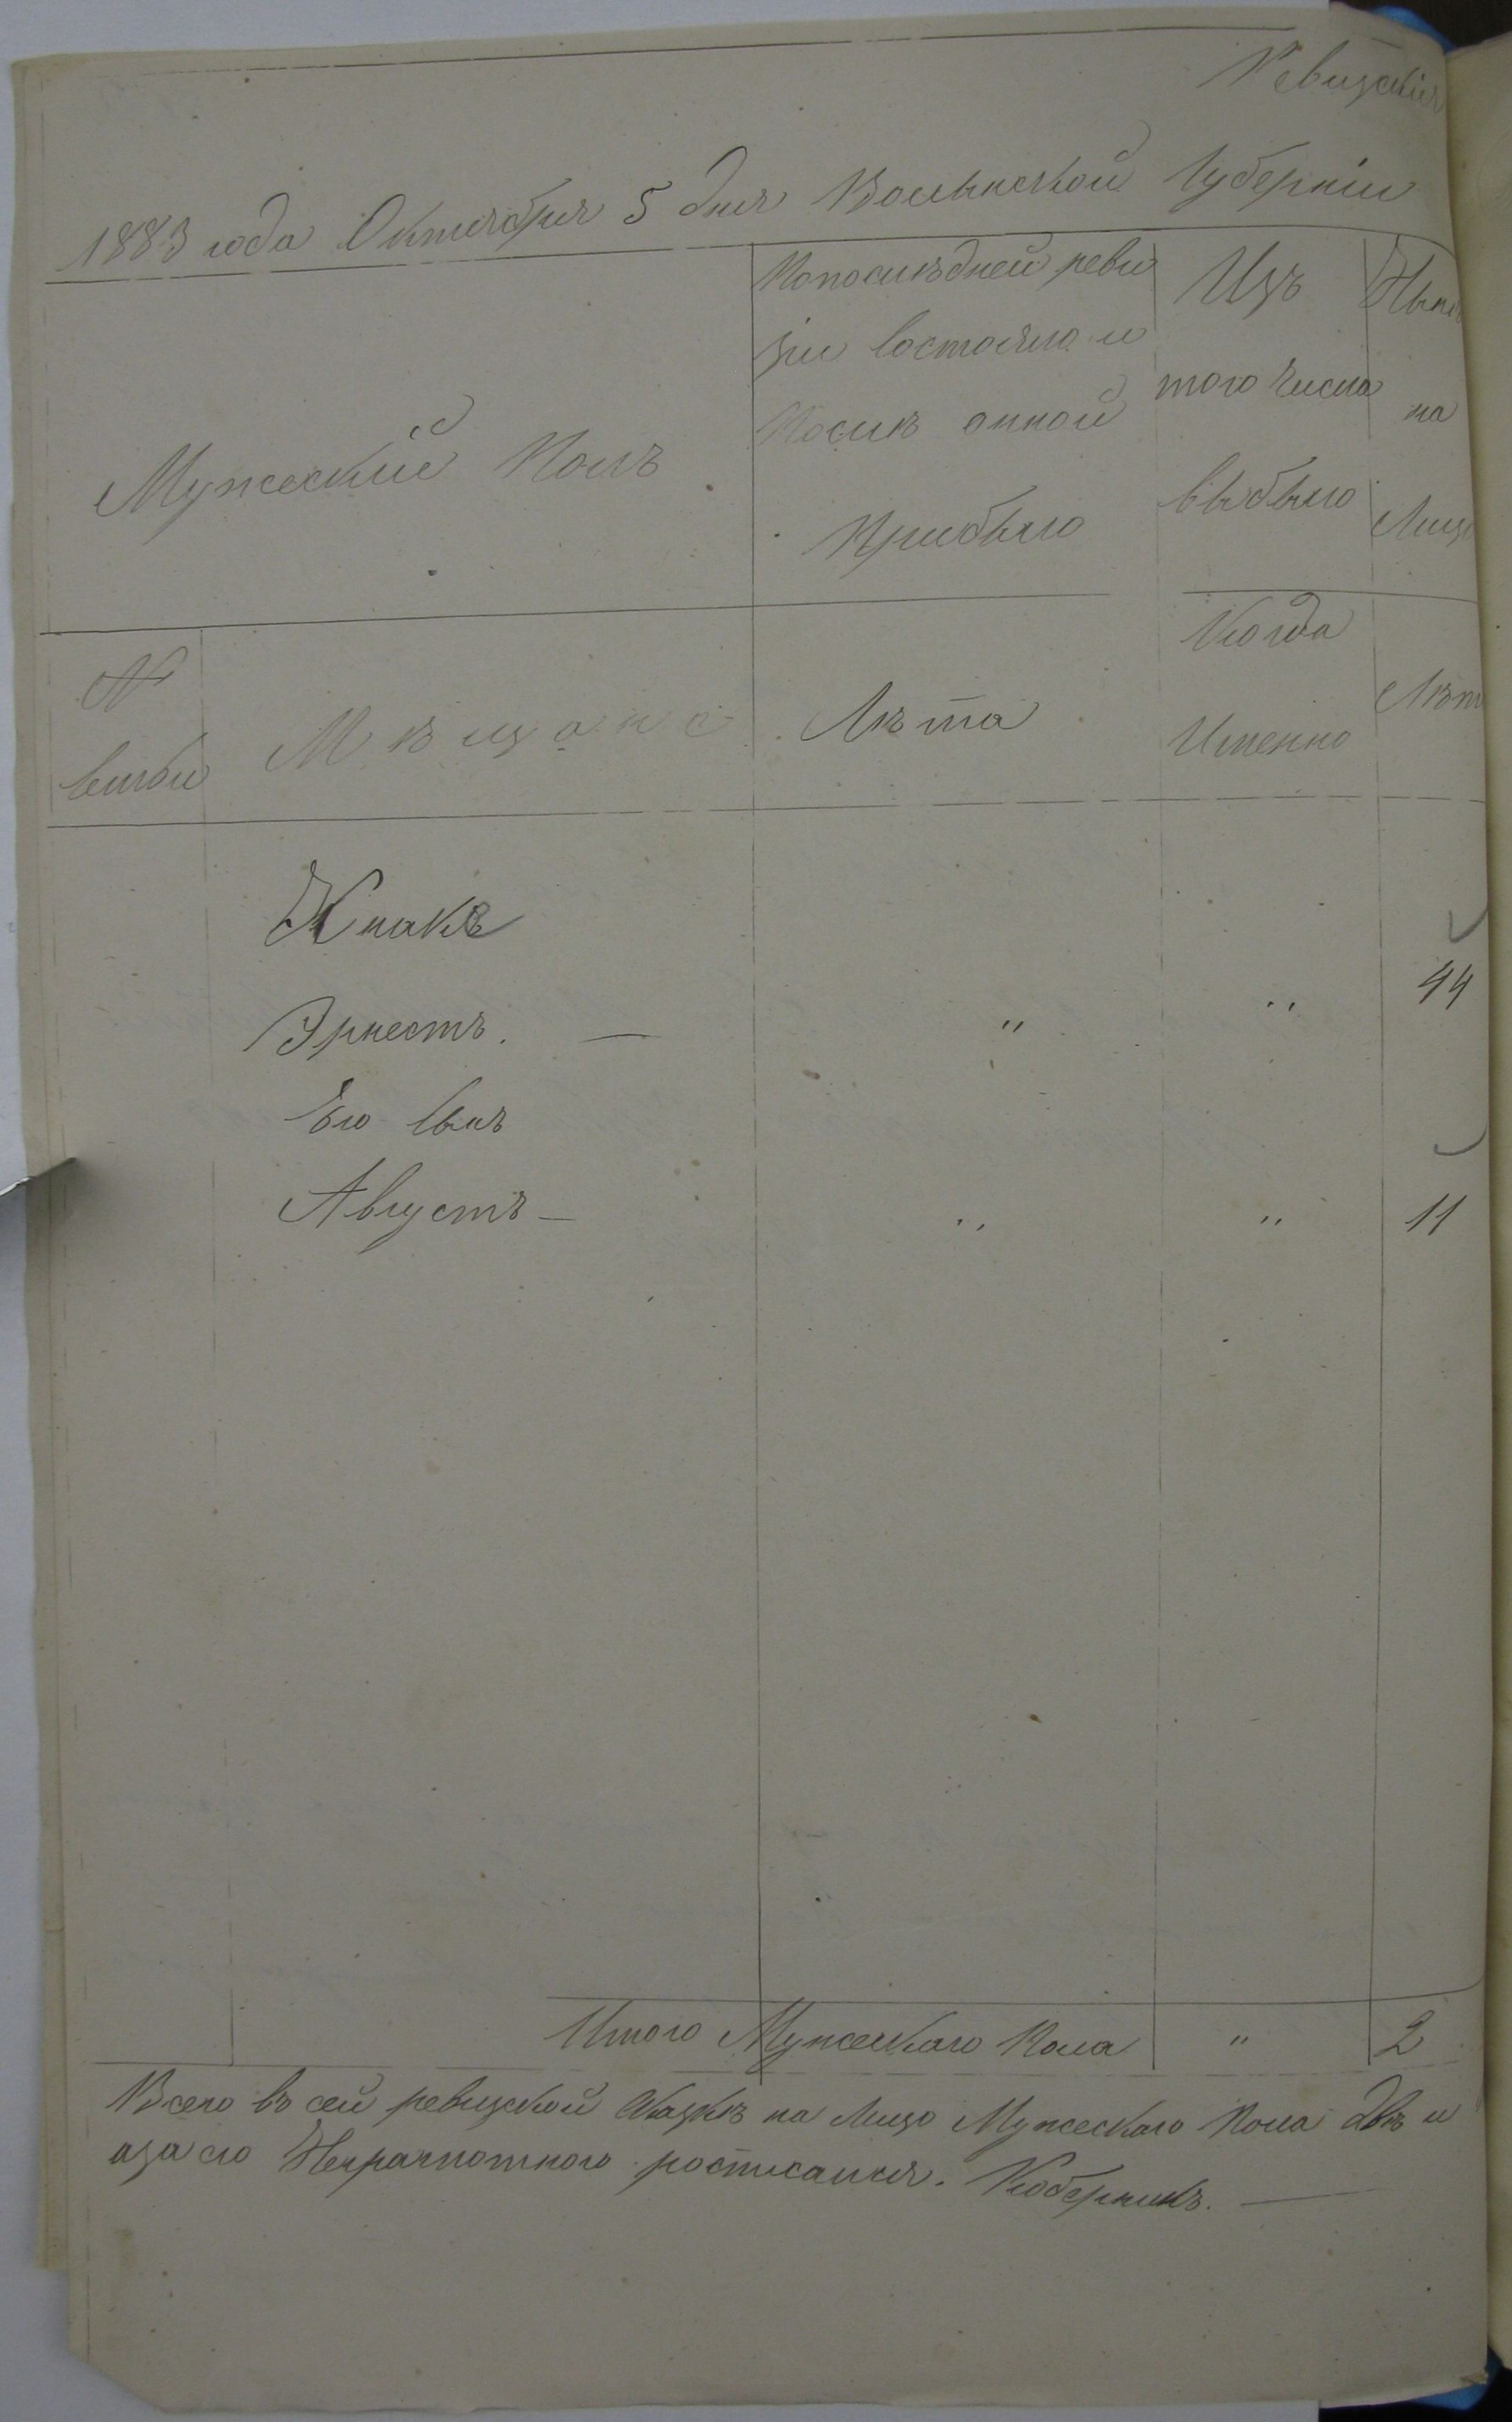 Ревизскія
1883 года Октября 5 дня Волынской Губерніи
Мужескій Полъ
Попослѣдней реви
зіи состояло и
Послѣ онной
Прибыло
Изъ
того числа
выбыло
на
№
семьи
Мѣщане
Лѣта
Когда
Именно
Кнакъ
Эрнестъ. — " " 44
Его Сынъ
Августъ — " " 11
Итого Мужескаго Пола " 2
Всего въ сей ревизской сказкѣ на Лицо Мужескаго Пола двѣ и
Неграмотного росписался. Коберникъ. —